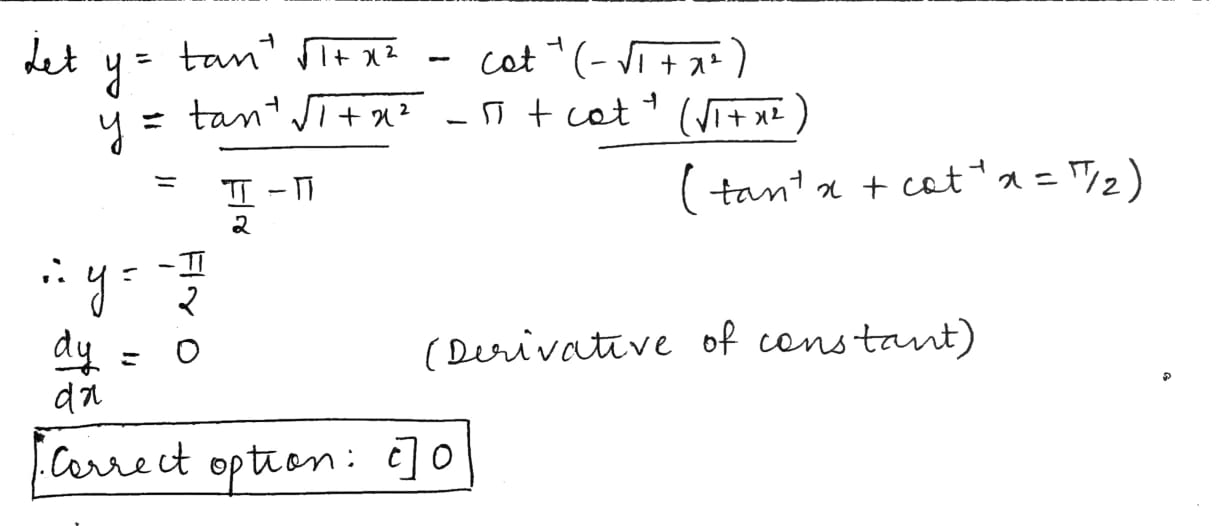 Let y = tan⁻¹ √1+x² - cot⁻¹(-√1+x²)
y = tan⁻¹ √1+x² - π + cot⁻¹ (√1+x²)
= π/2 - π (tan⁻¹x + cot⁻¹x = π/2)
∴ y = -π/2
dy/dx = 0 (Derivative of constant)
Correct option: c] 0